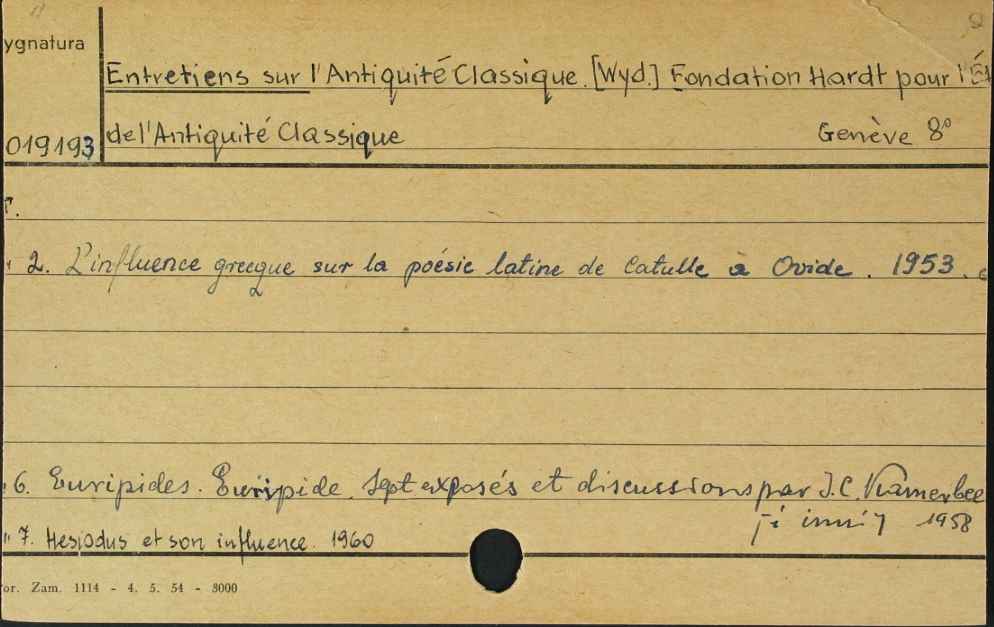 ygnatura
Entretiens sur l'Antiquité Classique. [Wyd.] Fondation Hardt pour l'É
019193 de l'Antiquité Classique Genève 8°
T.
" 2. L'influence grecque sur la poésie latine de Catulle à Ovide. 1953.
" 6. Euripides. Euripide. Sept exposés et discussions par J.C. Kamerbee
[i inni] 1958
" 7. Hesiodus et son influence. 1960
or. Zam. 1114 - 4. 5. 54 - 3000